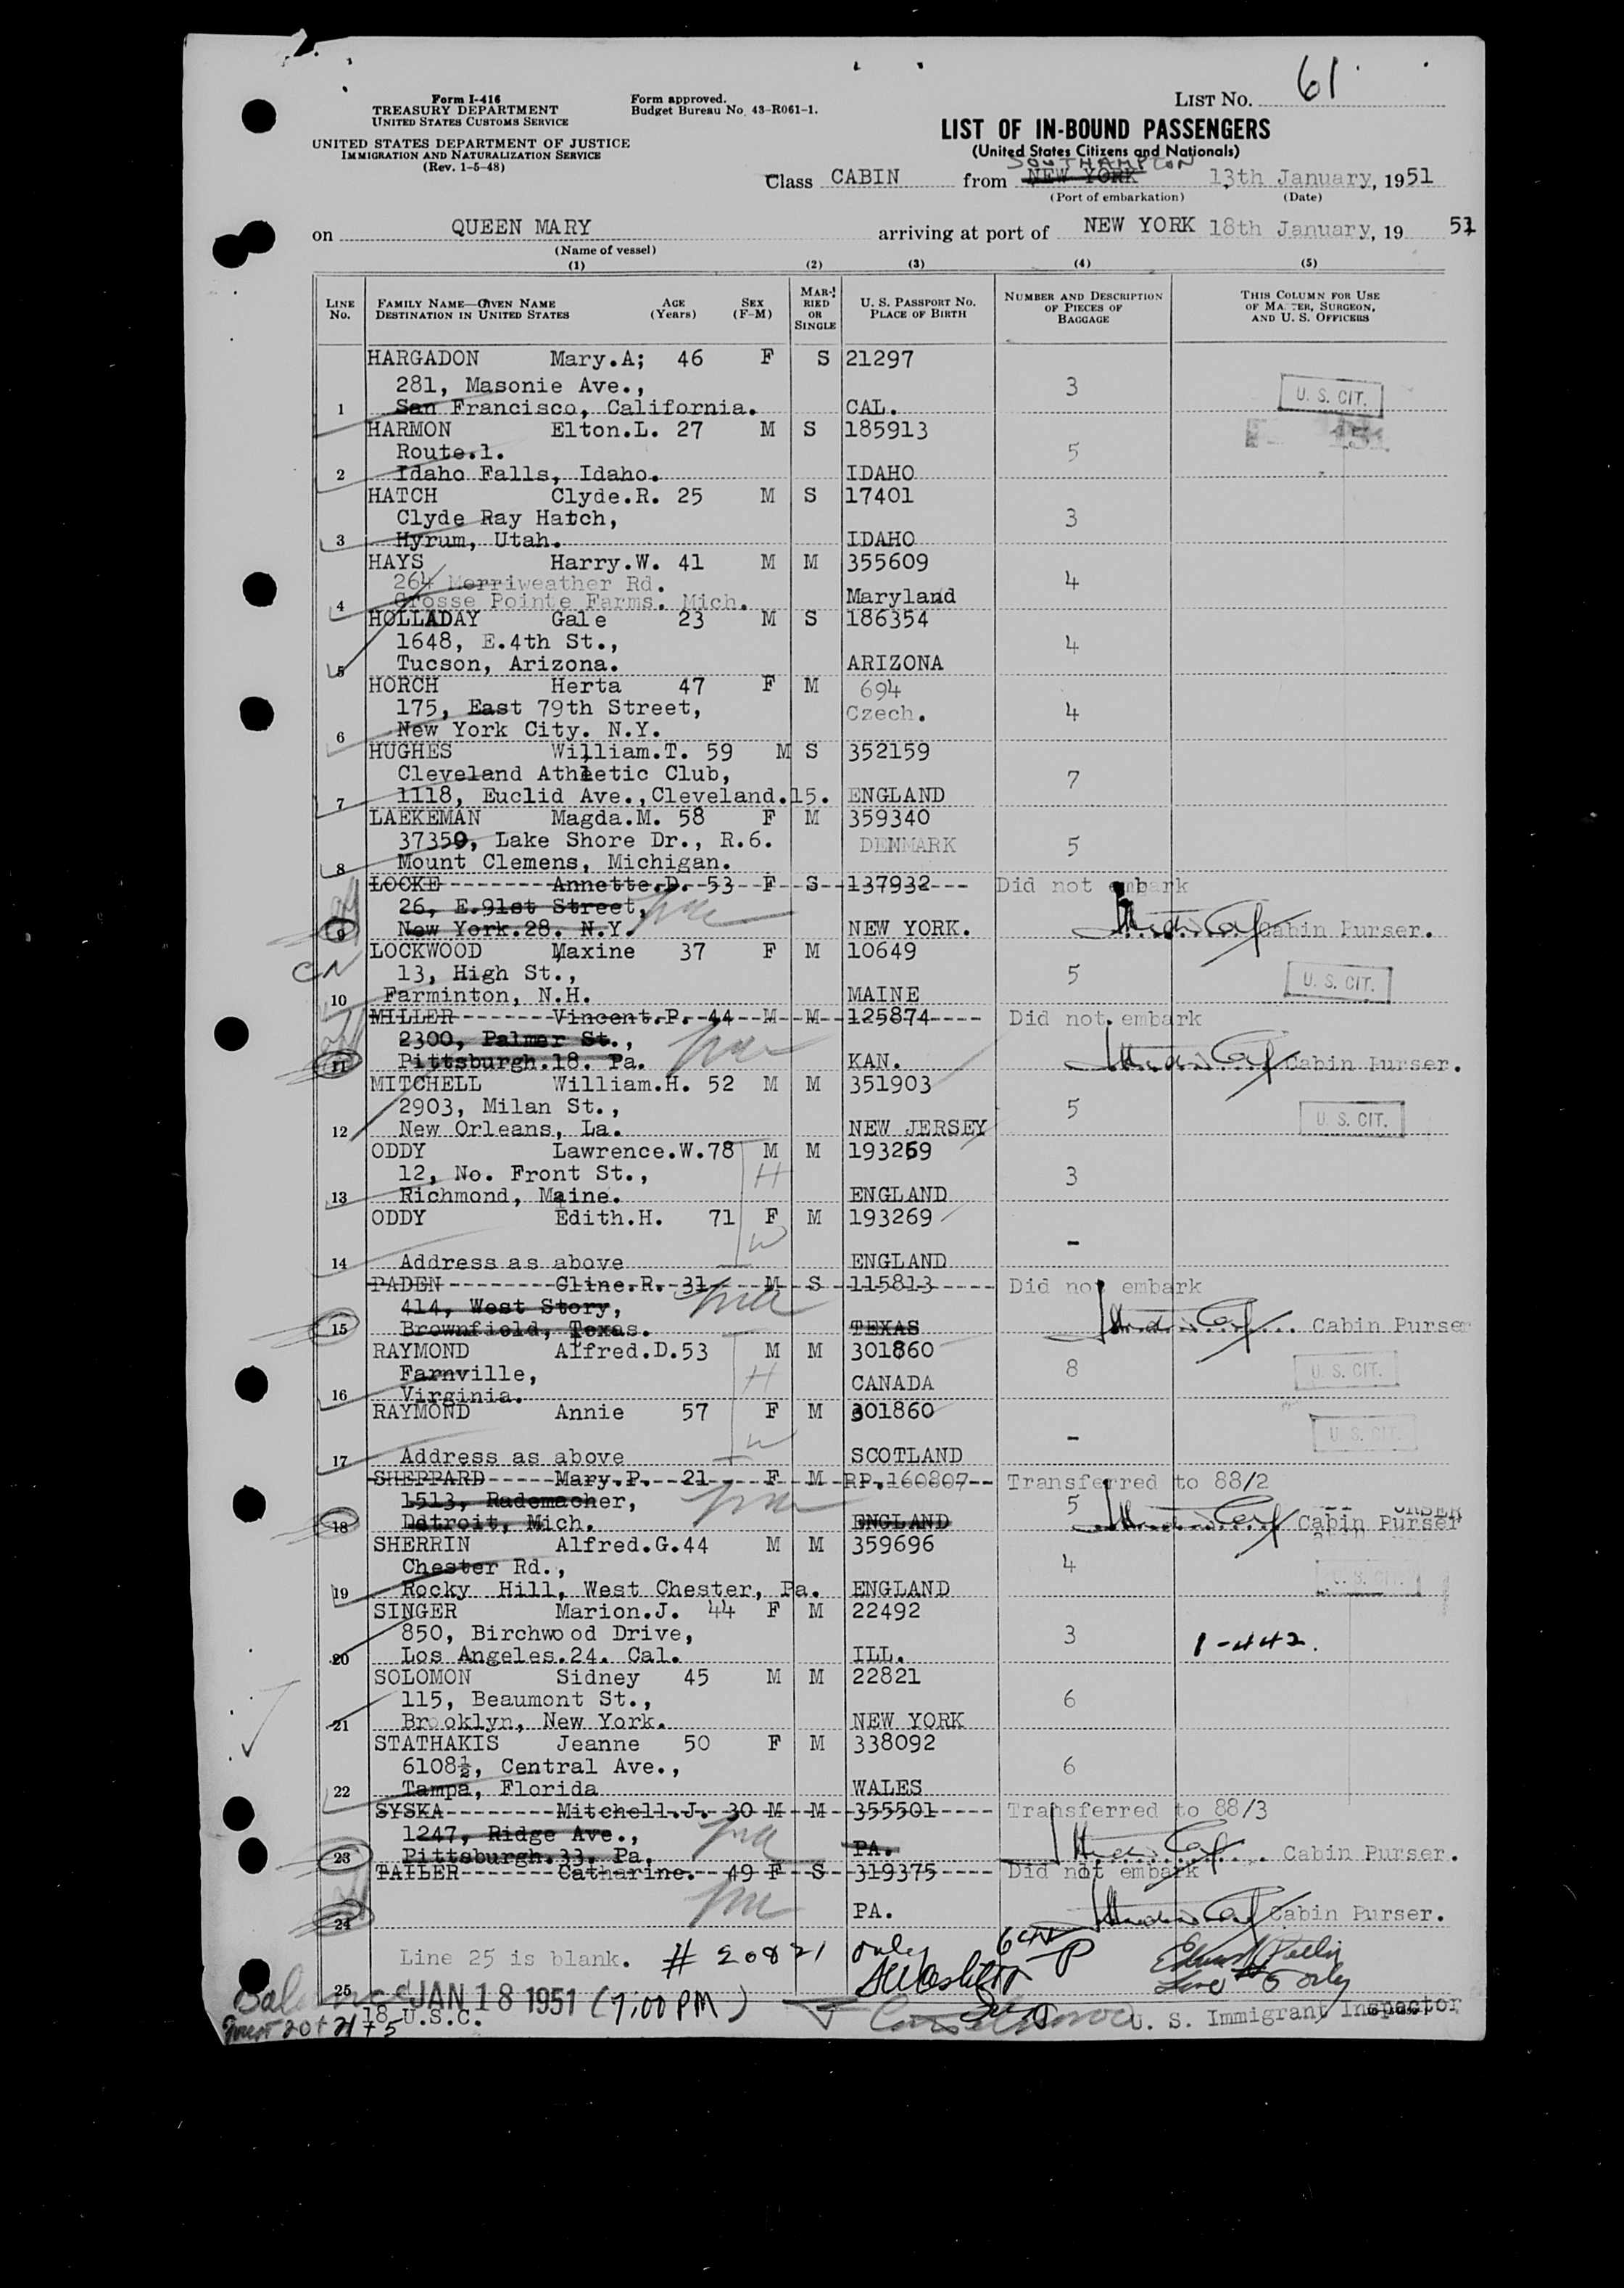 Form I-416
TREASURY DEPARTMENT
UNITED STATES CUSTOMS SERVICE
UNITED STATES DEPARTMENT OF JUSTICE
IMMIGRATION AND NATURALIZATION SERVICE
(Rev. 1-5-48)
Form approved.
Budget Bureau No. 43-R061-1.
LIST NO. 61
LIST OF IN-BOUND PASSENGERS
(United States Citizens and Nationals)
SOUTHAMPTON
Class CABIN from NEW YORK 13th January, 1951
(Port of embarkation) (Date)
on QUEEN MARY arriving at port of NEW YORK 18th January, 19 51
(Name of vessel)
(1) (2) (3) (4) (5)
LINE No. FAMILY NAME—GIVEN NAME DESTINATION IN UNITED STATES AGE (Years) SEX (F-M) MARRIED OR SINGLE U. S. PASSPORT NO. PLACE OF BIRTH NUMBER AND DESCRIPTION OF PIECES OF BAGGAGE THIS COLUMN FOR USE OF MASTER, SURGEON, AND U. S. OFFICERS
HARGADON Mary.A; 46 F S 21297
281, Masonie Ave., 3 U. S. CIT.
1 San Francisco, California. CAL.
HARMON Elton.L. 27 M S 185913
Route.1. 5
2 Idaho Falls, Idaho. IDAHO
HATCH Clyde.R. 25 M S 17401
Clyde Ray Hatch, 3
3 Hyrum, Utah. IDAHO
HAYS Harry.W. 41 M M 355609
264 Merriweather Rd. 4
4 Grosse Pointe Farms. Mich. Maryland
HOLLADAY Gale 23 M S 186354
1648, E.4th St., 4
5 Tucson, Arizona. ARIZONA
HORCH Herta 47 F M 694
175, East 79th Street, Czech. 4
6 New York City. N.Y.
HUGHES William.T. 59 M S 352159
Cleveland Athletic Club, 7
7 1118, Euclid Ave.,Cleveland.15. ENGLAND
LAEKEMAN Magda.M. 58 F M 359340
37350, Lake Shore Dr., R.6. DENMARK 5
8 Mount Clemens, Michigan.
LOCKE Annette.D. 53 F S 137932 Did not embark
26, E.91st Street,
9 New York.28. N.Y. NEW YORK. Cabin Purser.
LOCKWOOD Maxine 37 F M 10649
CN 13, High St., 5 U. S. CIT.
10 Farminton, N.H. MAINE
MILLER Vincent.P. 44 M M 125874 Did not embark
2300, Palmer St.,
11 Pittsburgh.18. Pa. KAN. Cabin Purser.
MITCHELL William.H. 52 M M 351903
2903, Milan St., 5 U. S. CIT.
12 New Orleans, La. NEW JERSEY
ODDY Lawrence.W.78 M M 193269
12, No. Front St., H 3
13 Richmond, Maine. ENGLAND
ODDY Edith.H. 71 F M 193269
W -
14 Address as above ENGLAND
PADEN Cline.R. 31 M S 115813 Did not embark
414, West Story,
15 Brownfield, Texas. TEXAS Cabin Purser
RAYMOND Alfred.D.53 M M 301860
Farnville, H CANADA 8 U. S. CIT.
16 Virginia.
RAYMOND Annie 57 F M 301860
W - U. S. CIT.
17 Address as above SCOTLAND
SHEPPARD Mary.P. 21 F M RP.160807 Transferred to 88/2
1513, Rademacher, 5
18 Detroit, Mich. ENGLAND Cabin Purser
SHERRIN Alfred.G.44 M M 359696
Chester Rd., 4 U. S. CIT.
19 Rocky Hill, West Chester, Pa. ENGLAND
SINGER Marion.J. 44 F M 22492
850, Birchwood Drive, 3 1-442.
20 Los Angeles.24. Cal. ILL.
SOLOMON Sidney 45 M M 22821
115, Beaumont St., 6
21 Brooklyn, New York. NEW YORK
STATHAKIS Jeanne 50 F M 338092
6108½, Central Ave., 6
22 Tampa, Florida WALES
SYSKA Mitchell.J. 30 M M 355501 Transferred to 88/3
1247, Ridge Ave.,
23 Pittsburgh.33. Pa. PA. Cabin Purser.
TAILER Catharine. 49 F S 319375 Did not embark
24 PA. Cabin Purser.
Line 25 is blank. # 20821 only
25 JAN 18 1951 (7:00 PM)
18 U.S.C. U. S. Immigrant Inspector